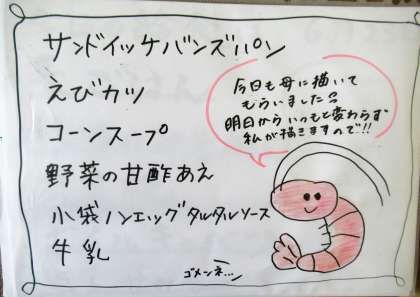 サンドイッチバンズパン
えびカツ
コーンスープ
野菜の甘酢あえ
小袋ノンエッグタルタルソース
牛乳
今日も母に描いて
もらいました
明日からいつもと変わらず
私が描きますので!!
ゴメンネ...